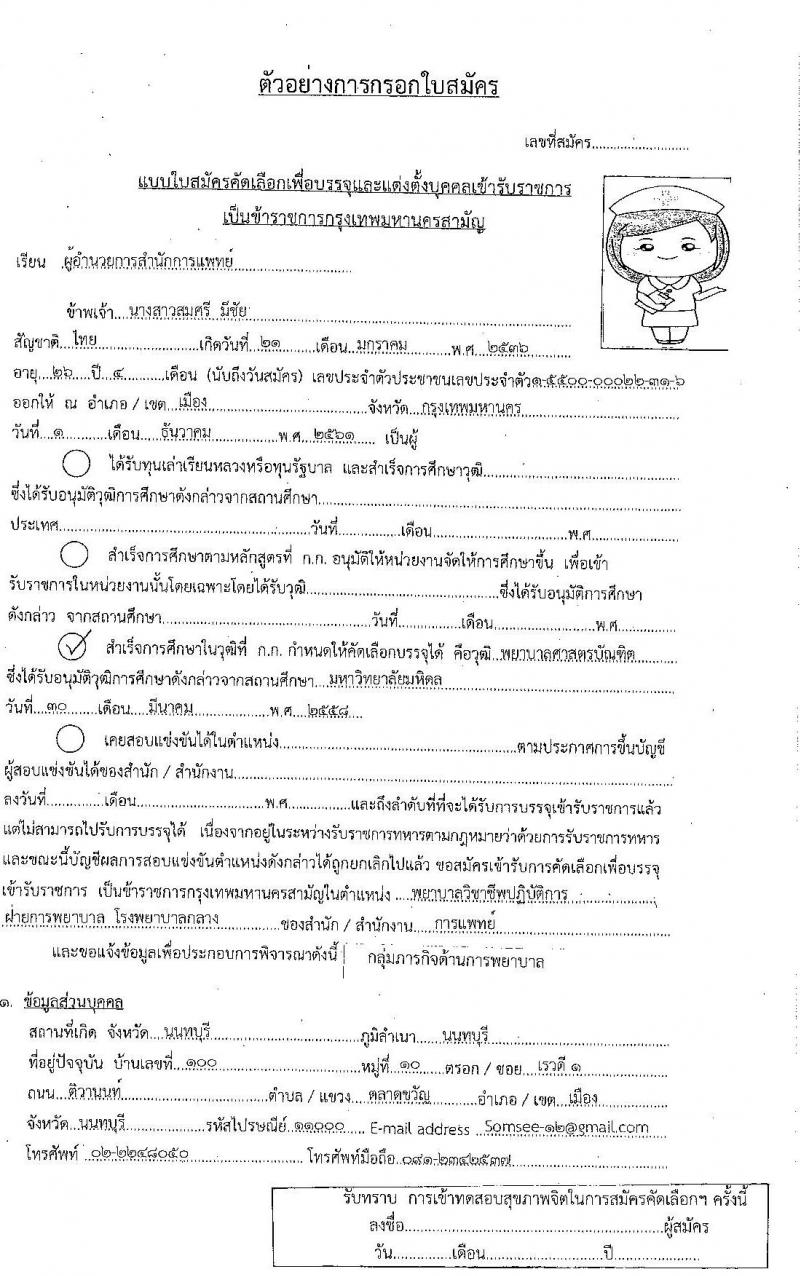 ตัวอย่างการกรอกใบสมัคร
เลขที่สมัคร........................
แบบใบสมัครคัดเลือกเพื่อบรรจุและแต่งตั้งบุคคลเข้ารับราชการ
เป็นข้าราชการกรุงเทพมหานครสามัญ
เรียน ผู้อำนวยการสำนักการแพทย์
ข้าพเจ้า....นางสาวสมศรี มีชัย
สัญชาติ....ไทย....เกิดวันที่..๒๑....เดือน..มกราคม....พ.ศ. ๒๕๓๖
อายุ...๒๖....ปี..๔....เดือน (นับถึงวันสมัคร) เลขประจำตัวประชาชนเลขประจำตัว๑-๕๕๐๐-๐๐๐๒๒-๓๑-๖
ออกให้ ณ อำเภอ / เขต..เมือง....จังหวัด..กรุงเทพมหานคร
วันที่...๑....เดือน....ธันวาคม....พ.ศ...๒๕๖๑.... เป็นผู้
ได้รับทุนเล่าเรียนหลวงหรือทุนรัฐบาล และสำเร็จการศึกษาวุฒิ........
ซึ่งได้รับอนุมัติวุฒิการศึกษาดังกล่าวจากสถานศึกษา........
ประเทศ........วันที่........เดือน........พ.ศ........
สำเร็จการศึกษาตามหลักสูตรที่ ก.ก. อนุมัติให้หน่วยงานจัดให้การศึกษาขึ้น เพื่อเข้า
รับราชการในหน่วยงานนั้นโดยเฉพาะโดยได้รับวุฒิ........ซึ่งได้รับอนุมัติการศึกษา
ดังกล่าว จากสถานศึกษา........วันที่........เดือน........พ.ศ........
สำเร็จการศึกษาในวุฒิที่ ก.ก. กำหนดให้คัดเลือกบรรจุได้ คือวุฒิ..พยาบาลศาสตรบัณฑิต
ซึ่งได้รับอนุมัติวุฒิการศึกษาดังกล่าวจากสถานศึกษา....มหาวิทยาลัยมหิดล
วันที่...๓๐....เดือน....มีนาคม....พ.ศ...๒๕๕๘...
เคยสอบแข่งขันได้ในตำแหน่ง........ตามประกาศการขึ้นบัญชี
ผู้สอบแข่งขันได้ของสำนัก / สำนักงาน........
ลงวันที่........เดือน........พ.ศ........และถึงลำดับที่ที่จะได้รับการบรรจุเข้ารับราชการแล้ว
แต่ไม่สามารถไปรับการบรรจุได้ เนื่องจากอยู่ในระหว่างรับราชการทหารตามกฎหมายว่าด้วยการรับราชการทหาร
และขณะนี้บัญชีผลการสอบแข่งขันตำแหน่งดังกล่าวได้ถูกยกเลิกไปแล้ว ขอสมัครเข้ารับการคัดเลือกเพื่อบรรจุ
เข้ารับราชการ เป็นข้าราชการกรุงเทพมหานครสามัญในตำแหน่ง ....พยาบาลวิชาชีพปฏิบัติการ
ฝ่ายการพยาบาล โรงพยาบาลกลาง........ของสำนัก / สำนักงาน....การแพทย์
และขอแจ้งข้อมูลเพื่อประกอบการพิจารณาดังนี้ กลุ่มภารกิจด้านการพยาบาล
๑. ข้อมูลส่วนบุคคล
สถานที่เกิด จังหวัด....นนทบุรี....ภูมิลำเนา....นนทบุรี
ที่อยู่ปัจจุบัน บ้านเลขที่...๑๐๐....หมู่ที่...๑๐....ตรอก / ซอย...เรวดี ๑
ถนน...ติวานนท์....ตำบล / แขวง....ตลาดขวัญ....อำเภอ / เขต...เมือง
จังหวัด..นนทบุรี....รหัสไปรษณีย์..๑๑๐๐๐.... E-mail address Somsee-๑๒@gmail.com
โทรศัพท์ ๐๒-๒๒๔๘๐๕๐....โทรศัพท์มือถือ..๐๘๑-๒๓๔๒๕๓๗
รับทราบ การเข้าทดสอบสุขภาพจิตในการสมัครคัดเลือกฯ ครั้งนี้
ลงชื่อ........ผู้สมัคร
วัน........เดือน........ปี........